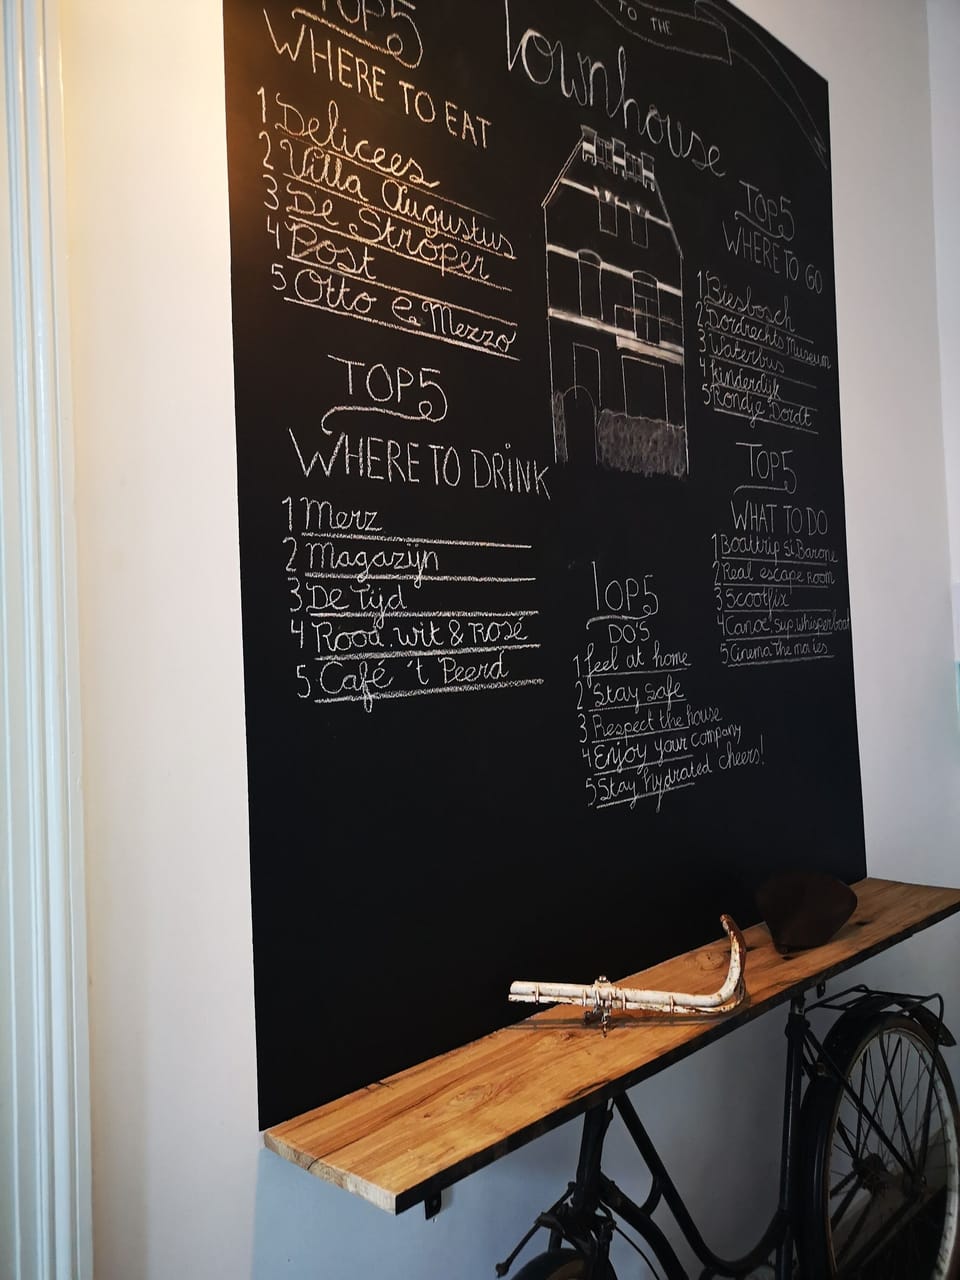 TOP5
WHERE TO EAT
1 Delicees
2 Villa Augustus
3 De Stroper
4 Post
5 Otto e Mezzo
TOP5
WHERE TO DRINK
1 Merz
2 Magazijn
3 De Tijd
4 Rood. wit & Rosé
5 Café 't Peerd
TO THE
Townhouse
TOP5
DO'S
1 feel at home
2 Stay safe
3 Respect the house
4 Enjoy your company
5 Stay hydrated cheers!
TOP5
WHERE TO GO
1 Biesbosch
2 Dordrechts Museum
3 Waterbus
4 Kinderdijk
5 Rondje Dordt
TOP5
WHAT TO DO
1 Boattrip si Barone
2 Real escape room
3 Scootfix
4 Canoe, sup, whisperboat
5 Cinema The movies